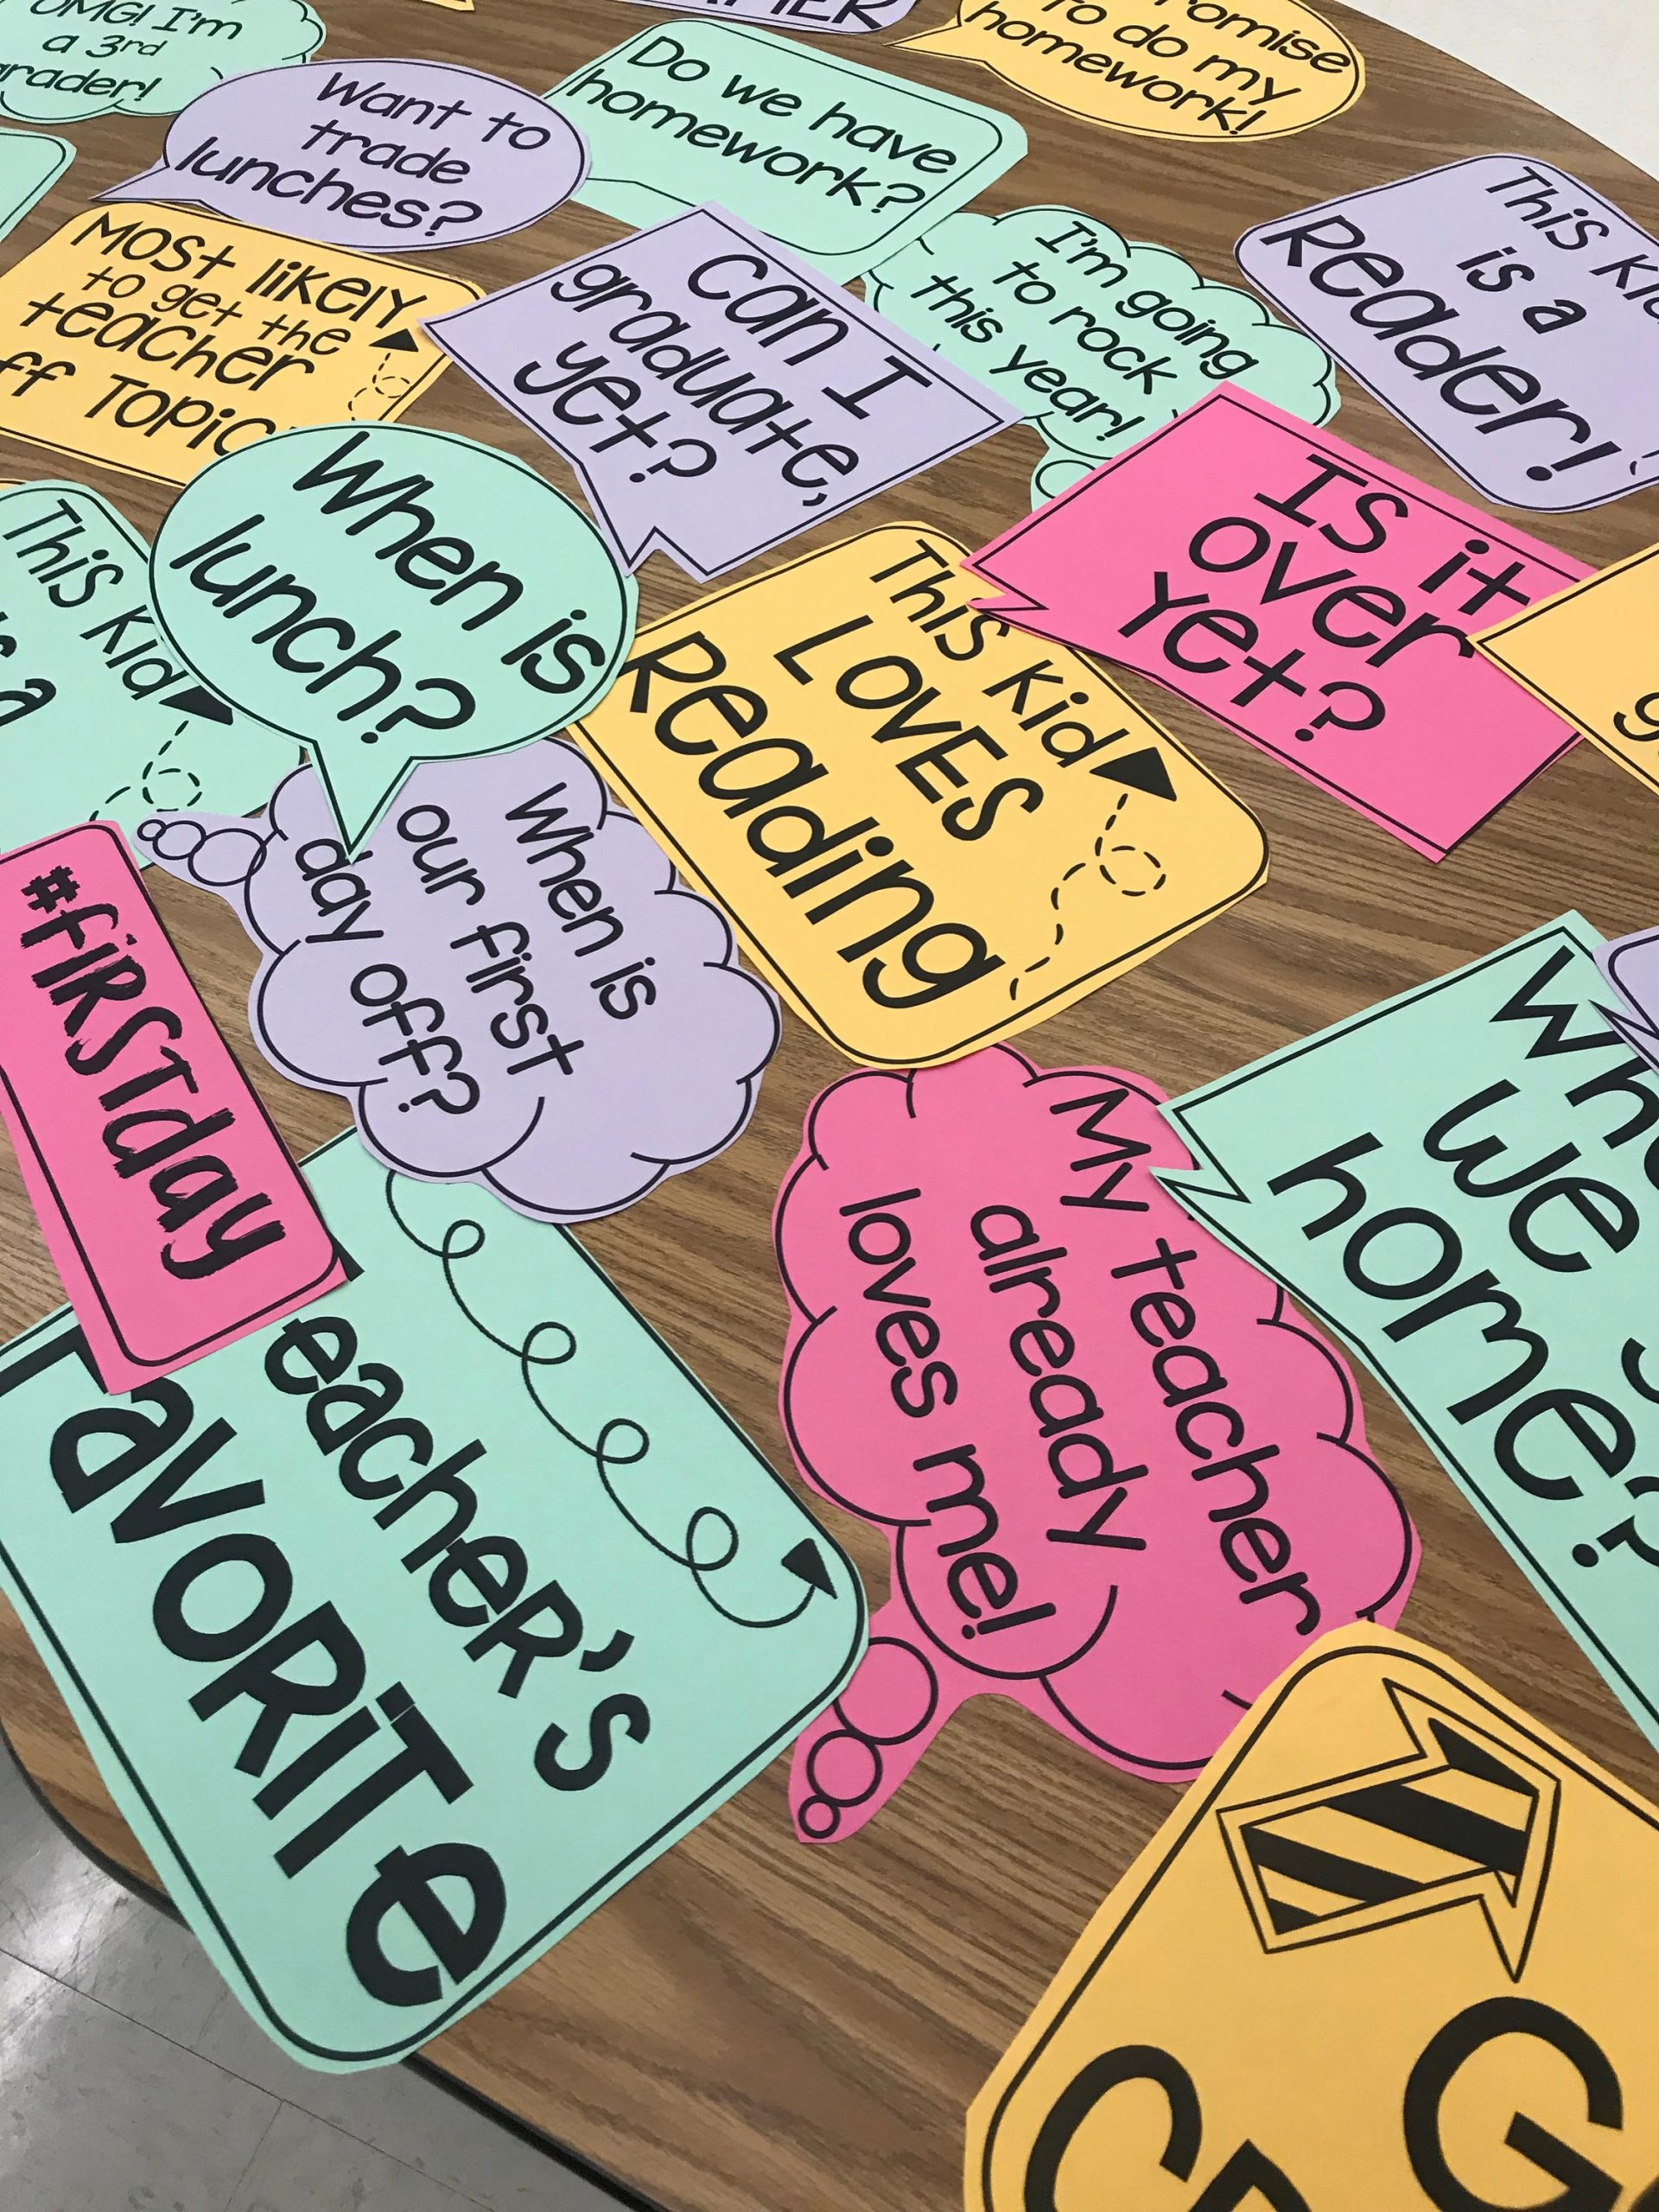 OMG! I'm
a 3rd
grader!
Want to
trade
lunches?
Do we have
homework?
to do my
homework!
Most likely
to get the
teacher
Topic
Can I
graduate,
yet?
I'm going
to rock
this year!
This Kid
is a
Reader!
When is
lunch?
This Kid
a
This Kid
LOVES
Reading
Is it
over
yet?
When is
our first
day off?
#firstday
My teacher
already
loves me!
we
home?
eacher's
Favorite
G